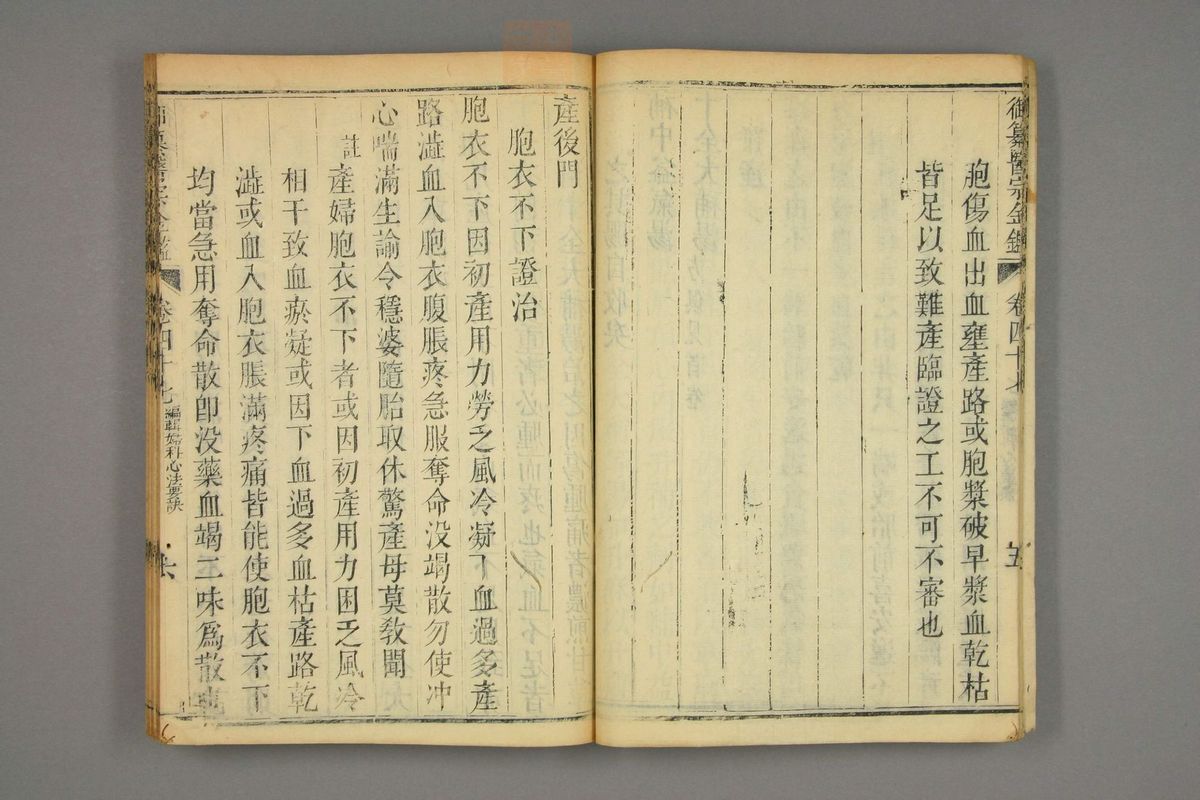 御纂醫宗金鑑 卷四十七 五
胞傷血出血壅產路或胞漿破早漿血乾枯
皆足以致難產臨證之工不可不審也
產後門
胞衣不下證治
胞衣不下因初產用力勞乏風冷凝下血過多產
路澁血入胞衣腹脹疼急服奪命沒竭散勿使冲
心喘滿生諭令穩婆隨胎取休驚產母莫敎聞
註產婦胞衣不下者或因初產用力困乏風冷
相干致血瘀凝或因下血過多血枯產路乾
澁或血入胞衣脹滿疼痛皆能使胞衣不下
均當急用奪命散卽没藥血竭二味爲散也
卷四十七 編輯婦科心法要訣 六